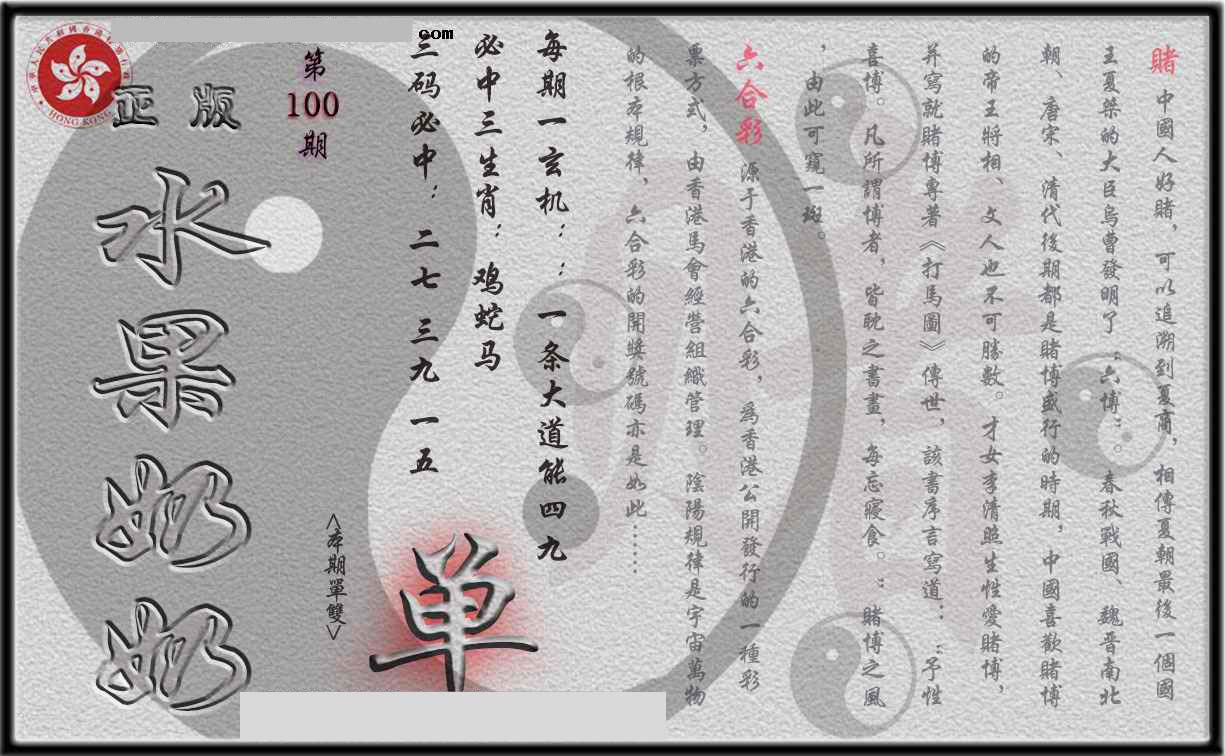 賭 中國人好賭，可以追溯到夏商，相傳夏朝最後一個國
王夏桀的大臣烏曹發明了“六博”。春秋戰國、魏晋南北
朝、唐宋、清代後期都是賭博盛行的時期，中國喜歡賭博
的帝王將相、文人也不可勝數。才女李清照生性愛賭博，
并寫就賭博專著《打馬圖》傳世，該書序言寫道：“予性
喜博。凡所謂博者，皆耽之書晝，每忘寢食。”賭博之風
，由此可窺一斑。
六合彩 源于香港的六合彩，為香港公開發行的一種彩
票方式，由香港馬會經營組織管理。陰陽規律是宇宙萬物
的根本規律，六合彩的開獎號碼亦是如此……
每期一玄机：：一条大道能四九
必中三生肖：鸡蛇马
三码必中：二七 三九 一五
com
第
100
期
<本期單雙>
单
正版
水果奶奶
HONG KONG